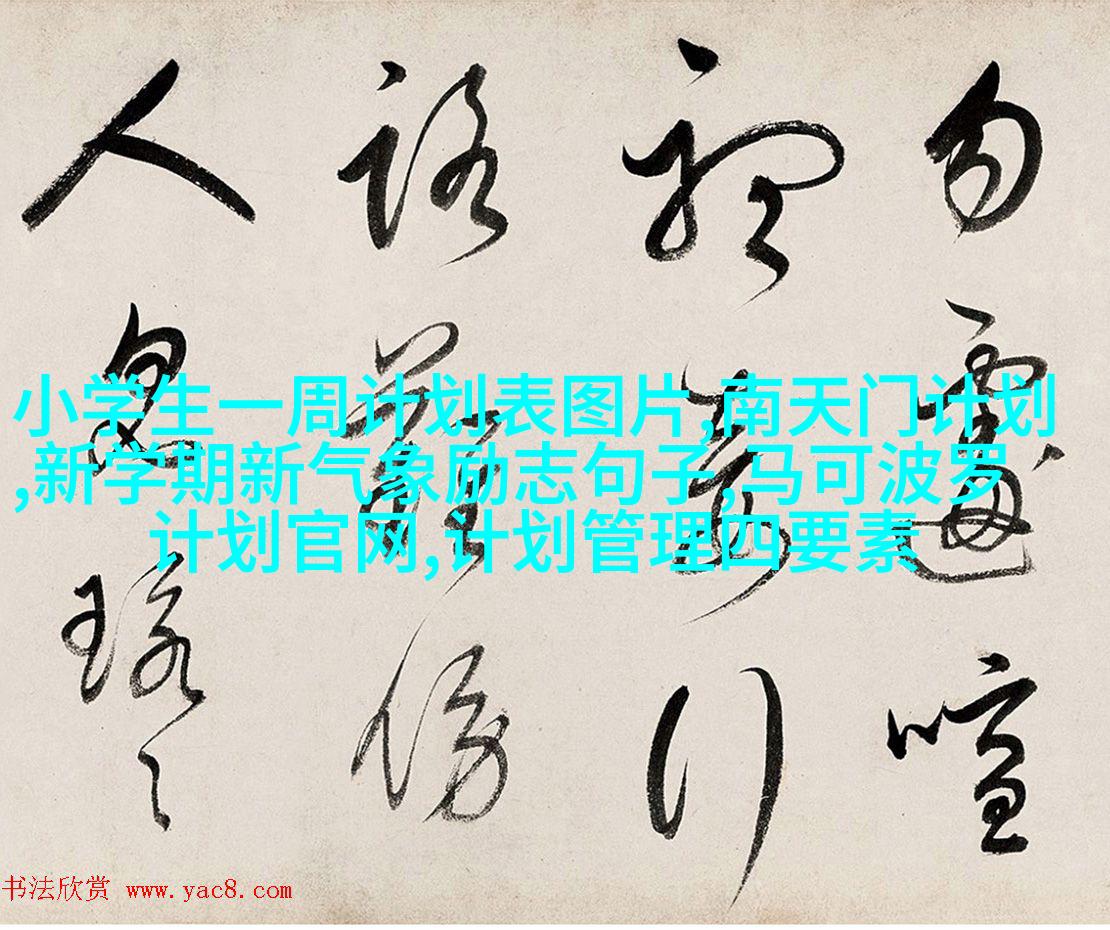 勿遽喧
行
路難傍
人
小学生一周计划表图片,南天门计划
,新学期新气象励志句子,马可波罗
计划官网,计划管理四要素
书法欣赏 www.yac8.com